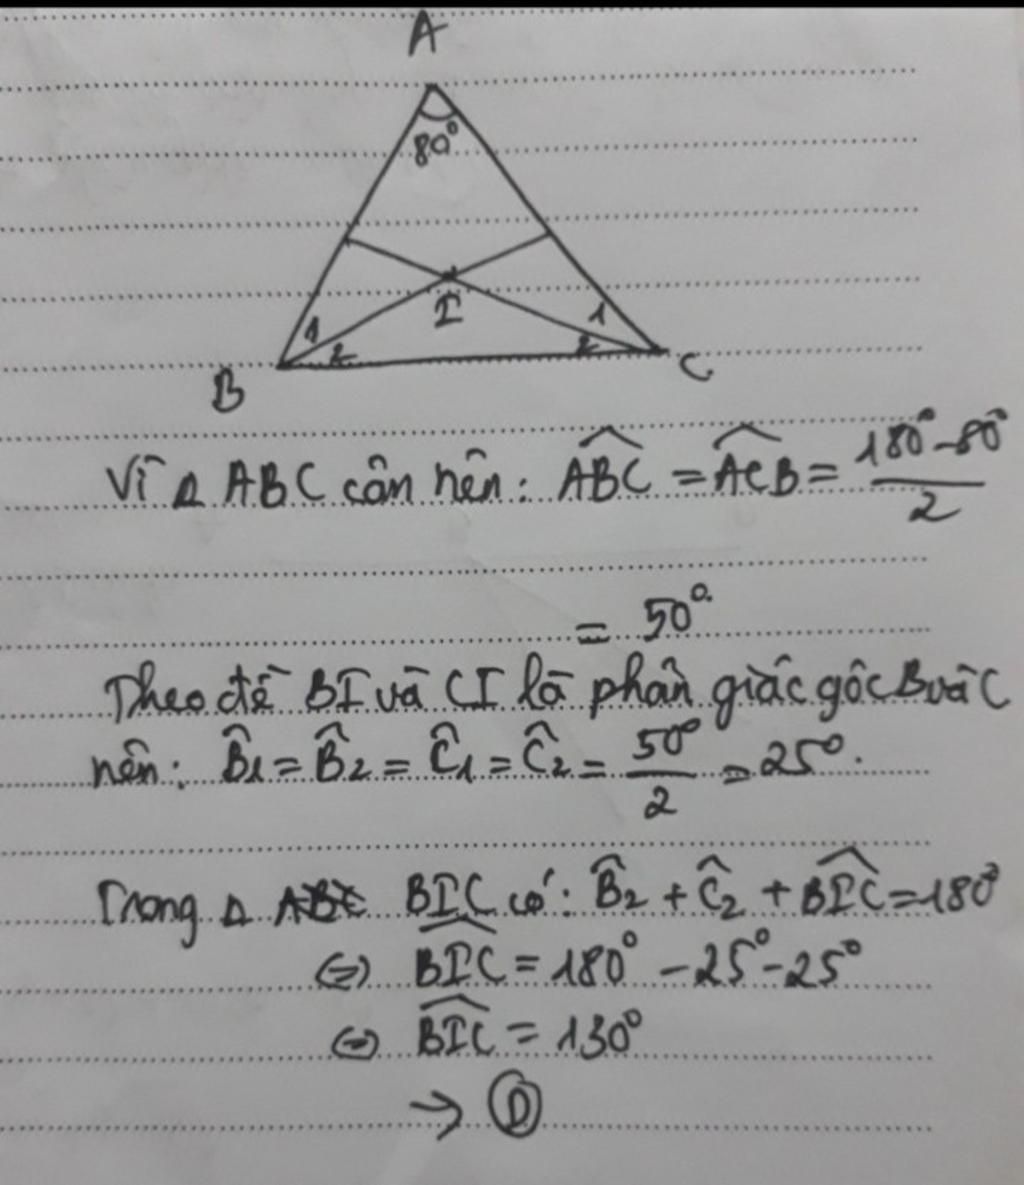 A
80°
I
1
2
1
2
B
C
Vì Δ ABC cân nên: $\widehat{ABC} = \widehat{ACB} = \frac{180° - 80°}{2}$
= 50°.
Theo đề BI và CI là phân giác góc B và C
nên: $\widehat{B}_1 = \widehat{B}_2 = \widehat{C}_1 = \widehat{C}_2 = \frac{50°}{2} = 25°.$
Trong Δ ABC BIC có: $\widehat{B}_2 + \widehat{C}_2 + \widehat{BIC} = 180°$
⇔ $\widehat{BIC} = 180° - 25° - 25°$
⇔ $\widehat{BIC} = 130°$
→ Ⓓ